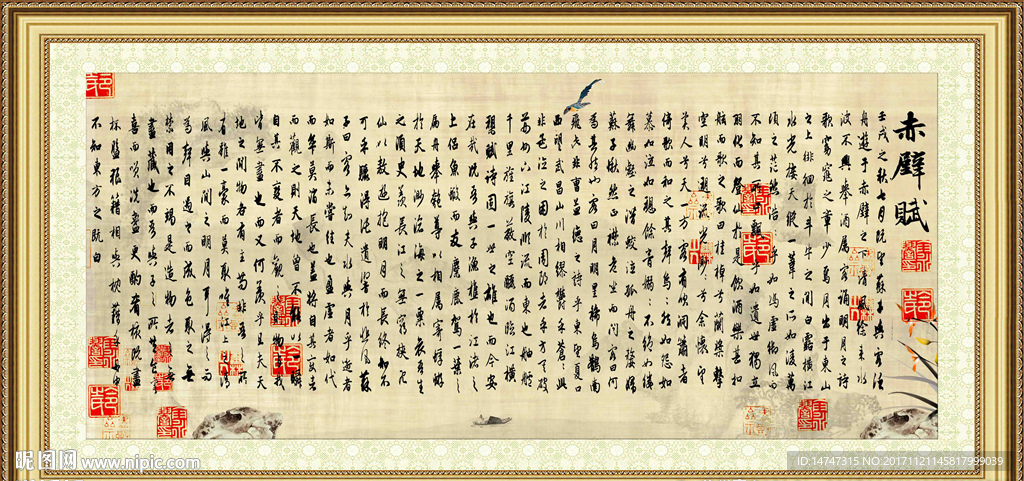 赤壁賦
壬戌之秋七月既望蘇子與客泛
舟遊於赤壁之下清風徐來水
波不興舉酒属客誦明月之詩
歌窈窕之章少焉月出於東山
之上徘徊於斗牛之間白露横江
水光接天縱一葦之所如凌萬
頃之茫然浩浩乎如馮虚御風而
不知其所止飄飄乎如遺世獨立
羽化而登仙於是飲酒樂甚扣
舷而歌之歌曰桂棹兮蘭槳擊
空明兮泝流光渺渺兮余懷望
美人兮天一方客有吹洞簫者
倚歌而和之其聲嗚嗚然如怨如
慕如泣如訴餘音嫋嫋不絶如縷
舞幽壑之潛蛟泣孤舟之嫠婦
蘇子愀然正襟危坐而問客曰何
為其然也客曰月明星稀烏鵲南
飛此非曹孟德之詩乎東望夏口
西望武昌山川相繆鬱乎蒼蒼此
非孟德之困於周郎者乎方其破
荆州下江陵順流而東也舳艫
千里旌旗蔽空釃酒臨江横
槊賦詩固一世之雄也而今安
在哉況吾與子漁樵於江渚之
上侶魚蝦而友麋鹿駕一葉之
扁舟舉匏尊以相属寄蜉蝣
於天地渺滄海之一粟哀吾生
之須臾羨長江之無窮挾飛
仙以遨遊抱明月而長終知不
可乎驟得託遺響於悲風蘇
子曰客亦知夫水與月乎逝者
如斯而未嘗往也盈虚者如代
而卒莫消長也蓋將自其變者
而觀之則天地曾不能以一瞬
自其不變者而觀之則物與我
皆無盡也而又何羨乎且夫天
地之間物各有主苟非吾之所
有雖一毫而莫取惟江上之清
風與山間之明月耳得之而
為聲目遇之而成色取之無
禁用之不竭是造物者之無
盡藏也而吾與子之所共食客
喜而笑洗盞更酌肴核既盡
杯盤狼藉相與枕藉乎舟中
不知東方之既白
昵图网 www.nipic.com
ID:14747315 NO:20171121145817999039